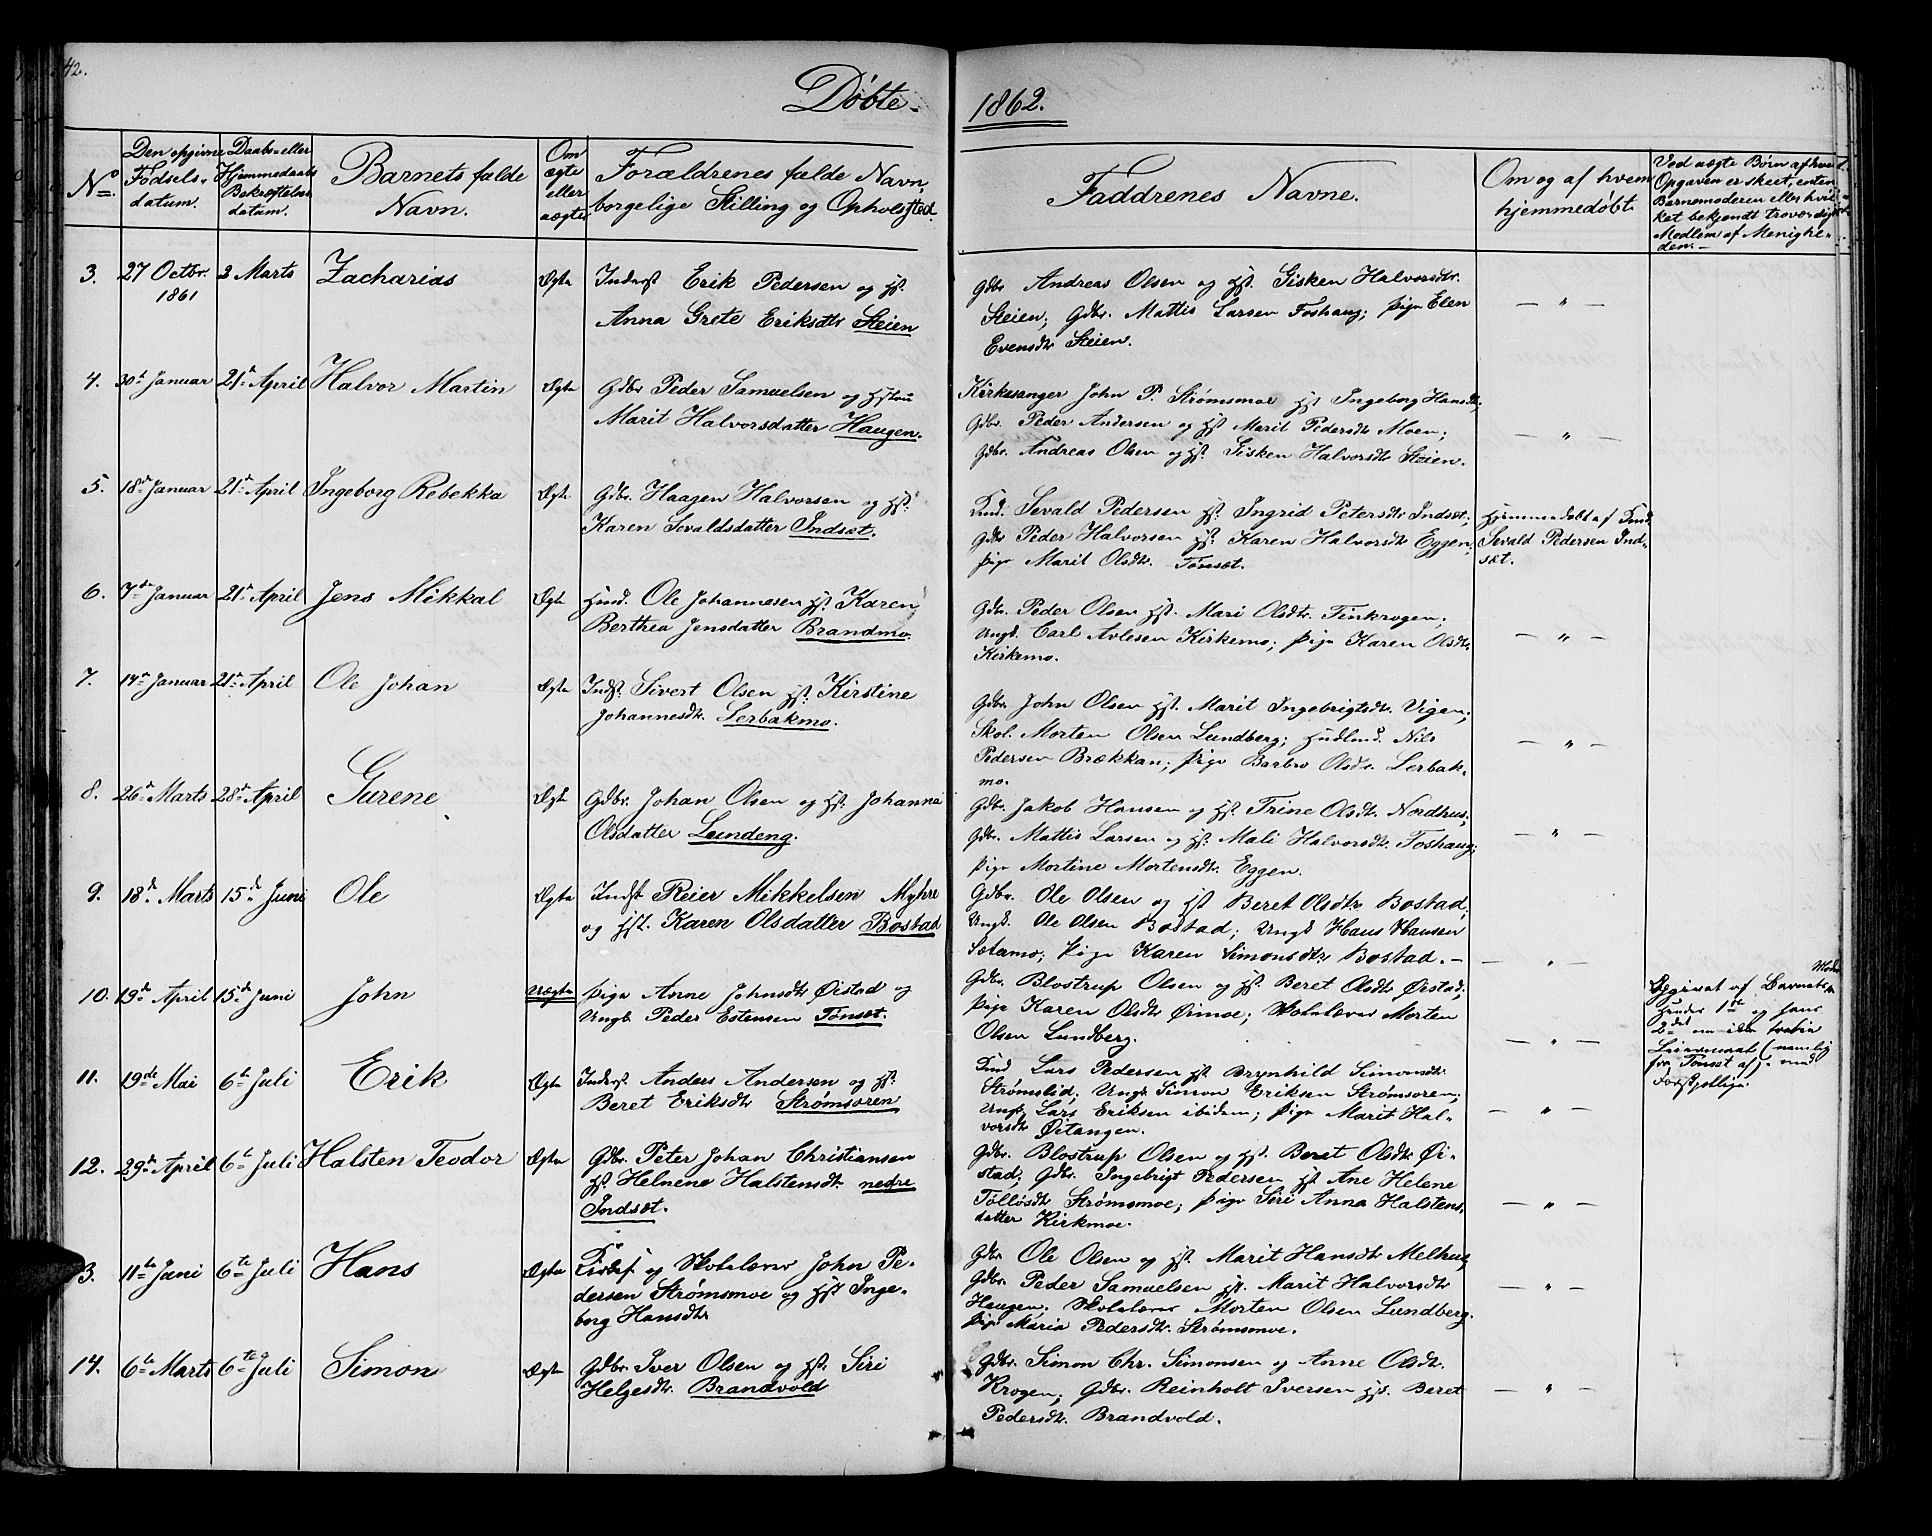 42.
Døbte 1862.
No.
Den opgivne Fødsels-datum.
Daabs- eller Hjemmedaabs Bekræftelses datum.
Barnets fulde Navn.
Om ægte eller uægte
Forældrenes fulde Navn, borgelige Stilling og Opholdsted.
Faddrenes Navne.
Om og af hvem hjemmedøbt.
Ved uægte Børn af hvem Opgaven er skeet, enten Barnemoderen eller hvilket bekjendt troværdigt Medlem af Menigheden.
3. 27 Octbr. 1861 2 Marts Zacharias Ægte
Inderst Erik Pedersen og Hst.
Anna Grete Eriksdtr Steien
Gdbr Andreas Olsen og Hst. Gisken Halvorsdtr.
Steien; Gdbr. Mattis Larsen Foshaug; Pige Elen
Evensdtr Steien.
— " —
4. 30te Januar 21de April Halvor Martin Ægte
Gdbr Peder Samuelsen og Hstru
Marit Halvorsdatter Haugen.
Kirkesanger John P. Strømsmoe Hst Ingeborg Hansdtr;
Gdbr. Peder Andersen og Hst Marit Pedersdtr Moen;
Gdbr. Andreas Olsen og Hst. Gisken Halvorsdtr Steien.
— " —
5. 18de Januar 21de April Ingeborg Rebekka Ægte
Gdbr. Haagen Halvorsen og Hst.
Karen Sevaldsdatter Indset.
Sevald Pedersen Hst. Ingrid Petersdtr Indset;
Gdbr Peder Halvorsen Hst. Karen Halvorsdtr Eggen,
Pige Marit Olsdtr. Tønset.
Hjemmedøbt af
Sevald Pedersen Ind-
set.
6. 7de Januar 21de April Jens Mikkal Ægte
Ole Johannesen Hst. Karen
Berthea Jensdatter Brandmo.
Gdbr. Peder Olsen Hst. Mari Olsdtr. Finkrogen;
Ungk. Carl Avlesen Kirkemo; Pige Karen Olsdtr.
Kirkemo.
— " —
7. 14de Januar 21de April Ole Johan Ægte
Indst. Sivert Olsen Hst. Kirstine
Johannesdtr. Lerbakmo.
Gdbr. John Olsen Hst. Marit Ingebrigtsdtr. Vigen;
Skol. Morten Olsen Lundberg; Nils
Pedersen Brækkan; Pige Barbro Olsdtr. Lerbak-
mo.
— " —
8. 26de Marts 28de April Gurene Ægte
Gdbr. Johan Olsen og Hst. Johanna
Olsdatter Lundeng.
Gdbr. Jakob Hansen og Hst. Trine Olsdtr. Nordhus;
Gdbr. Mattis Larsen og Hst. Mali Halvorsdtr. Foshaug;
Pige Mortine Mortensdtr. Eggen.
— " —
9. 18de Marts 15de Juni Ole Ægte
Indst Reier Mikkelsen Myhre
og Hst. Karen Olsdatter Bostad
Gdbr. Ole Olsen og Hst Beret Olsdtr Bostad;
Ungk. Ole Olsen Bostad; Ungk Hans Hansen
Solamo; Pige Karen Simonsdtr. Bostad. —
— " —
10. 19de April 15de Juni John Uægte
Pige Anne Johnsdtr Øistad og
Ungk. Peder Estensen Tønset.
Gdbr. Blostrup Olsen og Hst. Beret Olsdtr Øistad;
Pige Karen Olsdtr Øimoe; Skolelærer Morten
Olsen Lundberg.
— " —
Begivet af Barnets Moder
Hendes 1ste og hans
2det
Leiermaal (nemlig
fra Tønset af) med
Forskjellige.
11. 19de Mai 6te Juli Erik Ægte
Inderst Anders Andersen og Hst.
Beret Eriksdtr Strømsøren
Lars Pedersen Hst Brynhild Simonsdtr
Strømslid; Ungk Simon Eriksen Strømsøren;
Ungk Lars Eriksen ibidem; Pige Marit Hal-
vorsdtr Øitangen.
— " —
12. 29de April 6te Juli Halsten Teodor Ægte
Gdbr. Peter Johan Christiansen
Hst. Helnine Halstensdtr. nedre
Indset.
Gdbr. Blostrup Olsen og Hst. Beret Olsdtr Øi-
stad; Gdbr. Ingebrigt Pedersen Hst Ane Helene
Tolløsdtr Strømsmoe; Pige Siri Anna Halstens-
datter Kirkmoe.
— " —
13. 11te Juni 6te Juli Hans Ægte
og Skolelærer John Pe-
dersen Strømsmoe og Hst Inge-
borg Hansdtr
Gdbr. Ole Olsen og Hst. Marit Hansdtr Melhus;
Gdbr. Peder Samuelsen Hst. Marit Halvorsdtr
Haugen; Skolelærer Morten Olsen Lundberg.
Pige Maria Pedersdtr. Strømsmoe.
— " —
14. 6te Marts 6te Juli Simon Ægte
Gdbr. Iver Olsen og Hst. Siri
Helgesdtr. Brandvold
Gdbr. Simon Chr. Simonsen og Anne Olsdtr.
Krogen; Gdbr. Reinholt Iversen Hst. Beret
Pedersdtr. Brandvold.
— " —